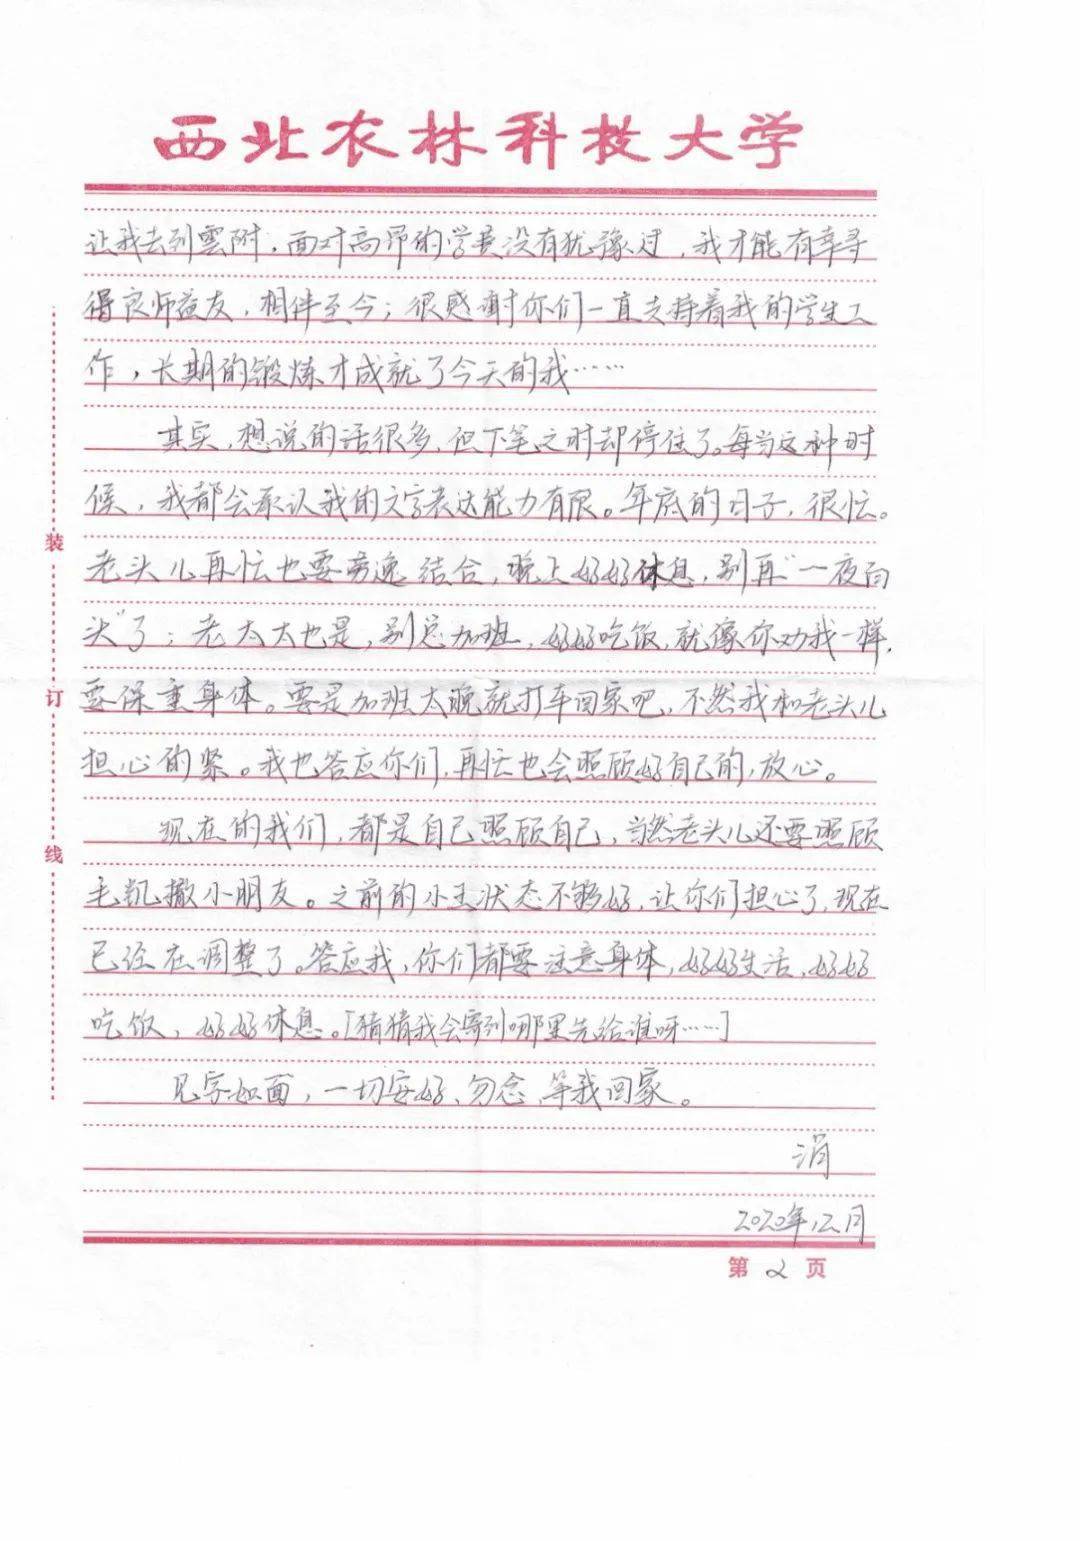 西北农林科技大学
让我去到雲附，面对高昂的学费没有犹豫过，我才能有幸寻
得良师益友，相伴至今；很感谢你们一直支持着我的学生工
作，长期的锻炼才成就了今天的我……
其实，想说的话很多，但下笔之时却停住了。每当这种时
候，我都会承认我的文字表达能力有限。年底的日子，很忙。
老头儿再忙也要劳逸结合，晚上好好休息，别再“一夜白
头”了；老太太也是，别总加班，好好吃饭，就像你劝我一样，
要保重身体。要是加班太晚就打车回家吧，不然我和老头儿
担心的紧。我也答应你们，再忙也会照顾好自己的，放心。
现在的我们，都是自己照顾自己，当然老头儿还要照顾
毛凯撒小朋友。之前的小王状态不够好，让你们担心了，现在
已经在调整了。答应我，你们都要注意身体，好好生活，好好
吃饭，好好休息。[猜猜我会寄到哪里先给谁呀……]
见字如面，一切安好、勿念，等我回家。
涓
2020年12月
第2页
装
订
线